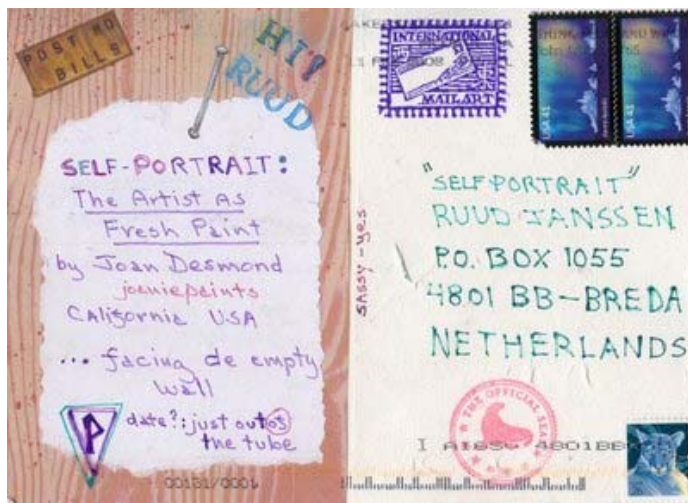 POST NO
BILLS
HI!
RUUD
SELF-PORTRAIT:
The Artist As
Fresh Paint
by Joan Desmond
joaniepaints
California USA
... facing de empty
wall
P
date?: just out of
the tube
SASSY-yes
INTERNATIONAL
MAIL ART
USA 41
USA 41
"SELF-PORTRAIT"
RUUD JANSSEN
P.O. BOX 1055
4801 BB-BREDA
NETHERLANDS
THE OFFICIAL SEAL
00131/0001